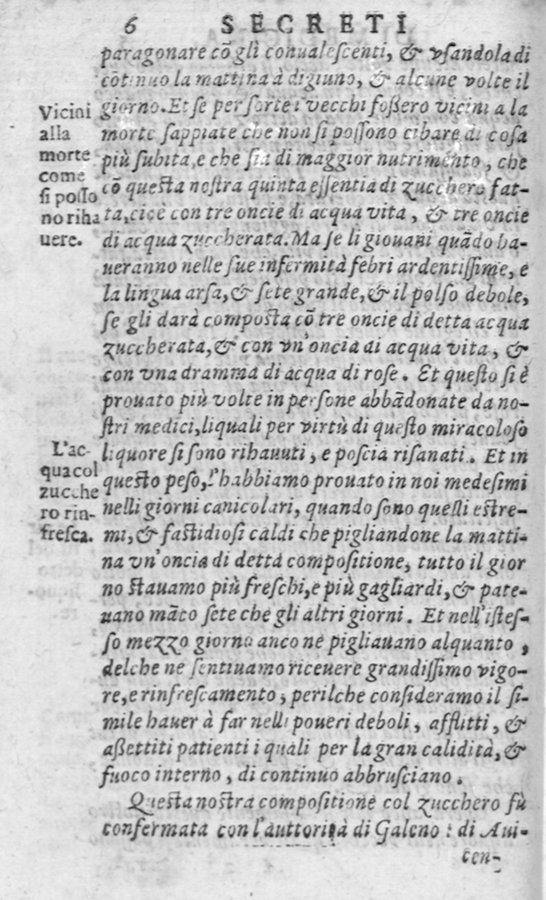 6 SECRETI
paragonare cõ gli conualescenti, & vsandola di
cõtinuo la mattina à digiuno, & alcune volte il
giorno. Et se per sorte i vecchi foßero vicini a la
morte sappiate che non si possono cibare di cosa
più subita, e che sia di maggior nutrimento, che
cõ questa nostra quinta essentia di zucchero fat-
ta, cioè con tre oncie di acqua vita, & tre oncie
di acqua zuccherata. Ma se li giouani quãdo ha-
ueranno nelle sue infermità febri ardentissime, e
la lingua arsa, & sete grande, & il polso debole,
se gli darà composta cõ tre oncie di detta acqua
zuccherata, & con vn'oncia di acqua vita, &
con vna dramma di acqua di rose. Et questo si è
prouato più volte in persone abbãdonate da no-
stri medici, liquali per virtù di questo miracoloso
liquore si sono rihauuti, e poscia risanati. Et in
questo peso, l'habbiamo prouato in noi medesimi
nelli giorni canicolari, quando sono quelli estre-
mi, & fastidiosi caldi che pigliandone la matti-
na vn'oncia di detta compositione, tutto il gior
no stauamo più freschi, e più gagliardi, & pate-
uano mãco sete che gli altri giorni. Et nell'istes-
so mezzo giorno anco ne pigliauano alquanto,
delche ne sentiuamo riceuere grandissimo vigo-
re, e rinfrescamento, perilche consideramo il si-
mile hauer à far nelli poueri deboli, afflitti, &
aßettiti patienti i quali per la gran calidità, &
fuoco interno, di continuo abbrusciano.
Questa nostra compositione col zucchero fù
confermata con l'auttorità di Galeno: di Aui-
cen-
Vicini
alla
morte
come
si posso
no riha
uere.
L'ac-
qua col
zucche
ro rin-
fresca.